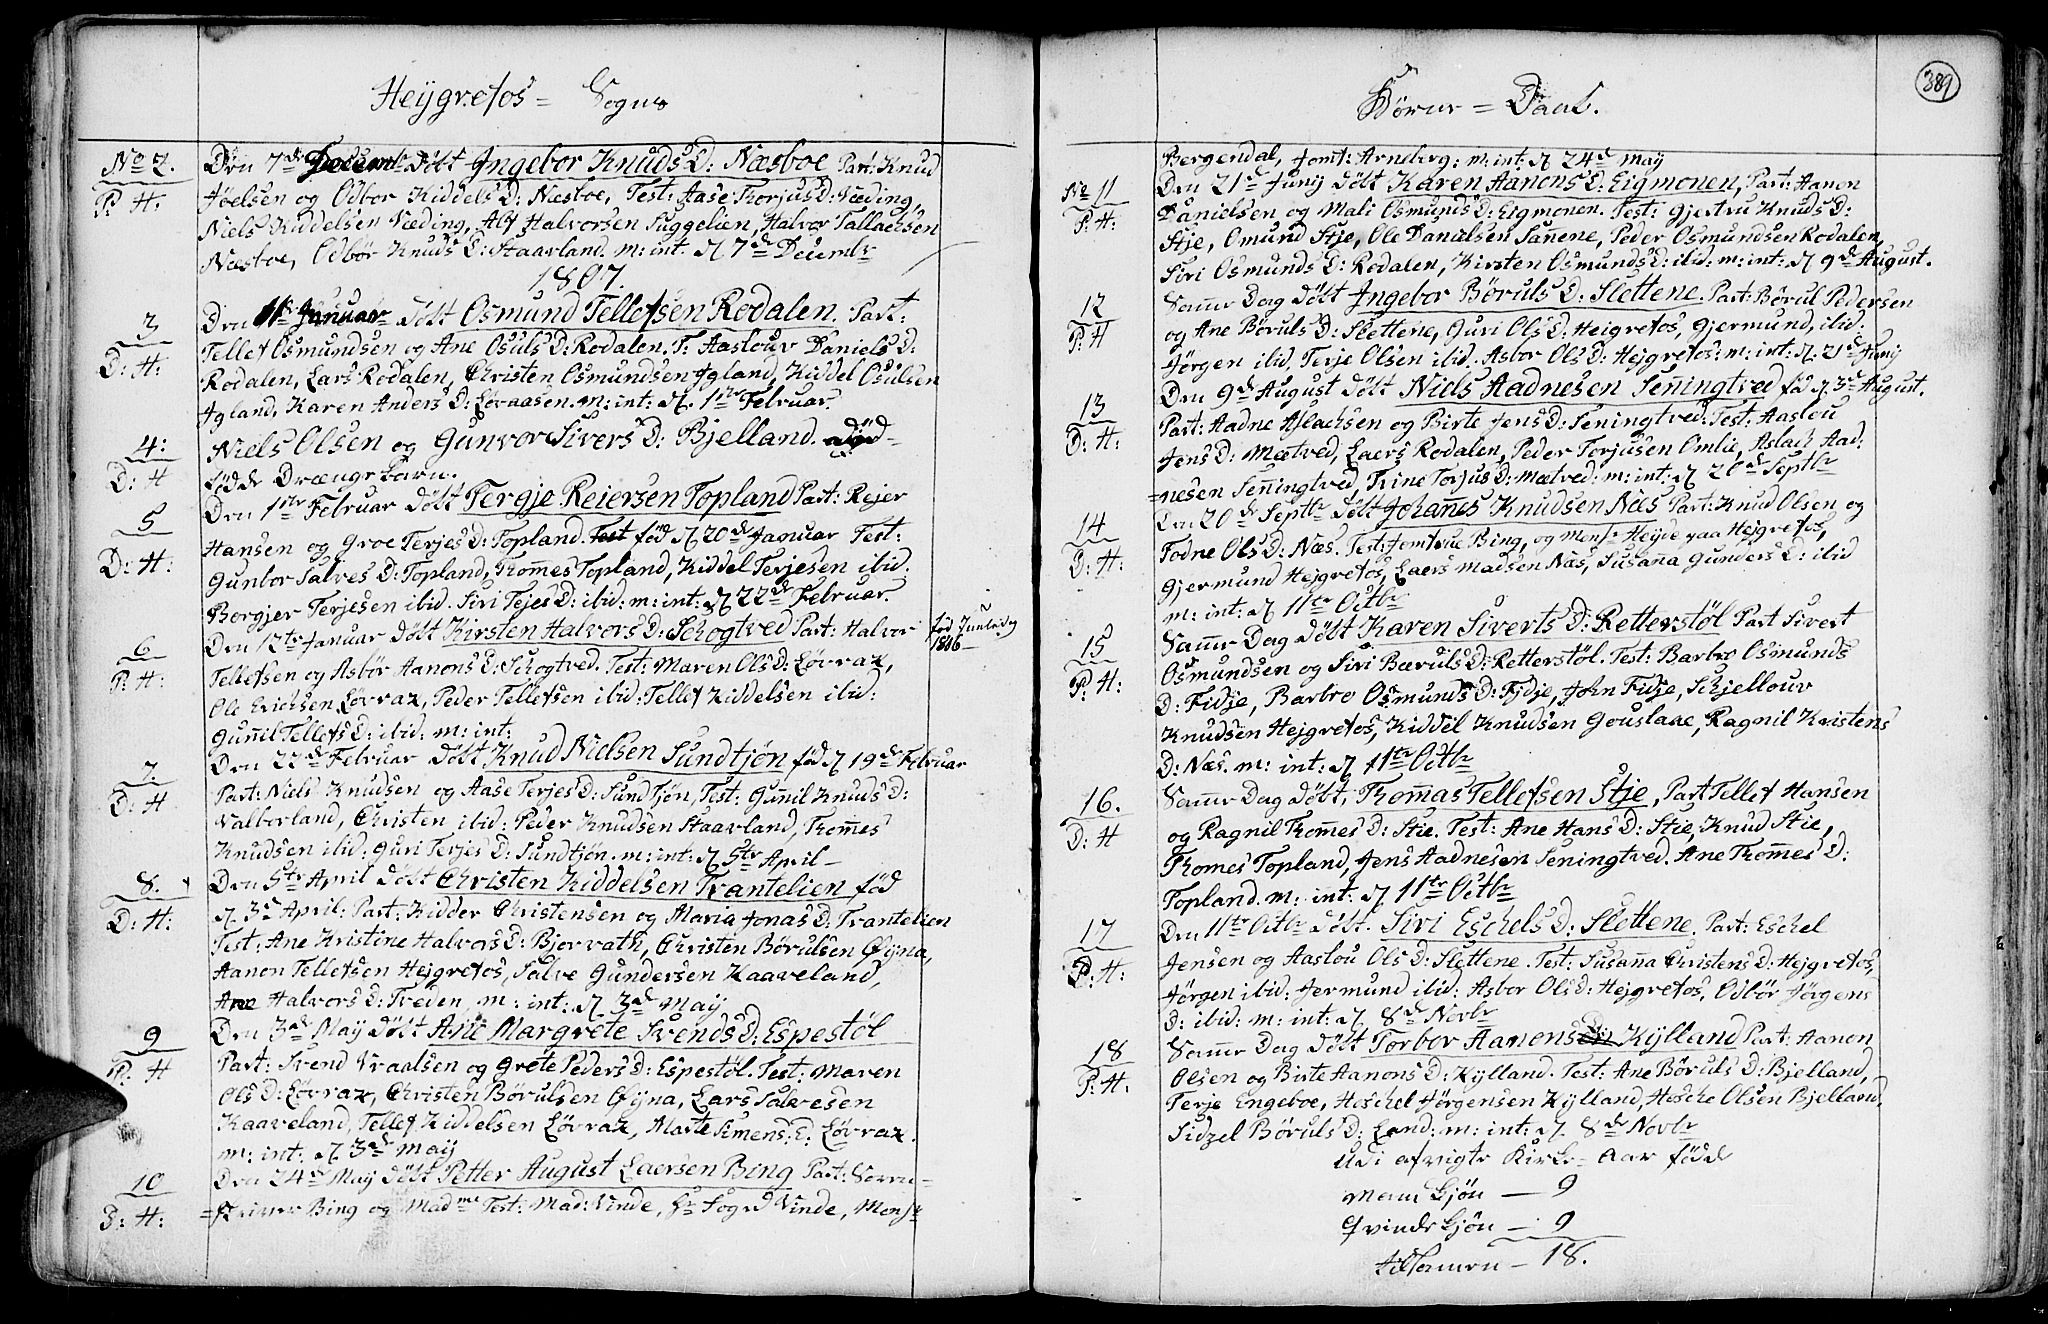 Heÿgrefos = Sogns
No 2. Den 7de Decembr døbt Ingebor Knuds D: Næsboe Part: Knud
P: H. Joelsen og Odbor Kiddels D: Næsboe, Test: Aase Torjus D: Væding,
Niels Kiddelsen Væding, Alf Halvorsen Suggelien, Halvor Tallachsen
Næsboe, Odbör Knuds D: Staarland. m: int. d 7de Decembr
1807.
3 Den 11te Januar døbt Osmund Tellefsen Rodalen. Part:
D: H: Tellef Osmundsen og Ane Osuls D: Rodalen. T: Aaslouv Daniels D:
Rodalen, Lars Rodalen, Christen Osmundsen Igland, Kiddel Osulsen
Igland, Karen Anders D: Løvaasen. m: int: d. 1ste Februar.
4: Niels Olsen og Gunvor Sivers D: Bjelland. död-
D: H födde Drænge barn.
5 Den 1ste Februar döbt Tergje Reiersen Topland Part: Rejer
D: H: Hansen og Groe Terjes D: Topland. Test föd d 20de Januar Test:
Gunbor Salves D: Topland, Thomes Topland, Kiddel Terjesen ibid.
Borgjer Terjesen ibid. Siri Tejes D: ibid: m: int: d 22de Februar.
6 Den 12te Januar döbt Kirsten Halvors D: Schogtved Part: Halvor föd Juuledag 1806-
P: H: Tellefsen og Asbör Aanons D: Schogtved. Test: Maren Ols D: Lövrax,
Ole Erichsen Lövrax, Peder Tellefsen ibid: Tellef Kiddelsen ibid:
Gunnil Tellefs D: ibid: m: int:
7. Den 22de Februar döbt Knud Nielsen Sundtjön föd d 19de Februar
D: H Part: Niels Knudsen og Aase Terjes D: Sundtjön, Test: Gunnil Knuds D:
Valborland, Christen ibid: Peder Knudsen Staarland, Thomes
Knudsen ibid: Guri Terjes D: Sundtjön. m: int: d 5te April-
8. Den 5te April döbt Christen Kiddelsen Trantelien föd
D: H: d. 3de April: Part: Kidder Christensen og Maria Jonas D: Trantelien
Test: Ane Kristine Halvors D: Bjorvath, Christen Börulsen Øÿna,
Aanon Tellefsen Hejgrefos, Salve Gundersen Kaaveland,
Ane Halvors D: Treden. m: int: d. 3de Maÿ
9 Den 3de Maÿ döbt Ane Margrete Svends D: Espestöl
P: H Part: Svend Vraalsen og Grete Peders D: Espestöl. Test: Maren
Ols D: Lövrax, Christen Börulsen Øÿna, Lars Salvesen
Kaaveland, Tellef Kiddelsen Lövrax, Marte Simens: D: Lövrax.
m: int: d 3de Maÿ
10 Den 24de Maÿ döbt Petter August Laersen Bing Part: Sorrn-
D: H: =skriver Bing og Madme Test: Mad: Vinde, Hr Foged Vinde, Monsr
389
Börne = Daab.
Bergendal, Jomf: Arneberg: m: int: d 24de Maÿ
No 11 Den 21de Junij döbt Karen Aanons D: Eigmonen, Part: Aanon
P: H: Danielsen og Mali Osmunds D: Eigmonen. Test: Gjertru Knuds D:
Stje, Omund Stje, Ole Danielsen Sannene, Peder Osmundsen Rodalen,
Siri Osmunds D: Rodalen, Kirsten Osmunds D: ibid: m: int: d 9de August.
12 Samme Dag döbt Ingebor Böruls D. Slettene. Part: Börul Pedersen
P: H og Ane Böruls D: Slettene, Guri Ols D. Heigrefos, Gjermund, ibid.
Jörgen ibid. Terje Olsen ibid. Asbor Ols D: Hejgrefos: m: int: d. 21de Junij
13 Den 9de August döbt Niels Aadnesen Senningtved föd d 3de August.
D: H: Part: Aadne Aslachsen og Birte Jens D: Seningtved. Test: Aaslou
Jens D: Mætved, Laers Rodalen, Peder Torjusen Omlie, Aslach Aad:
=nesen Senningtved, Trine Torjus D: Mætved: m: int: d 20de Septbr
14 Den 20de Septbr döbt Johannes Knudsen Næs Part: Knud Olsen og
D: H: Todne Ols D: Næs. Test: Jomfrue Bing, og Monsr Heyde paa Hejgrefos,
Gjermund Hejgrefos, Laers Madsen Næs, Susanna Gunders D: ibid
m: int: d 11te Octbr
15 Samme Dag döbt Karen Siverts D: Retterstöl Part Sivert
P: H: Osmundsen og Siri Bæruls D: Retterstöl. Test: Barbro Osmunds
D: Fidje, Barbro Osmunds D: Fjdje, John Fidje, Schjellouv
Knudsen Hejgrefos, Kiddel Knudsen Gouslaae, Ragnil Kristens
D: Næs. m: int: d 11te Octbr
16. Samme Dag döbt, Thommas Tellefsen Stje, Part Tellef Hansen
D: H og Ragnil Thommes D: Stie. Test: Ane Hans D: Stie, Knud Stie,
Thomes Topland, Jens Aadnesen Seningtved, Ane Thommes D:
Topland. m: int: d 11te Octbr
17 Den 11te Octbr döbt. Siri Eschels D: Slettene. Part: Eschel
P: H: Jensen og Aaslou Ols D: Slettene. Test: Susanna Christens D: Hejgrefos,
Jörgen ibid: Jermund ibid: Asbor Ols D: Hejgrefos, Odbör Jörgens
D: ibid: m: int: d 8de Novbr
18 Samme Dag döbt Torbor Aanons D: Kÿlland Part: Aanon
P: H. Olsen og Birte Aanons D: Kylland. Test: Ane Böruls D: Bjelland,
Terje Engeboe, Heschel Jörgensen Kylland, Hesche Olsen Bjelland,
Sidzel Böruls D: Land: m: int: d. 8de Novbr
Udi afvigte Kirke-Aar födde
Mand kjön — 9
Qvinde kjön — 9
tilsamen — 18.